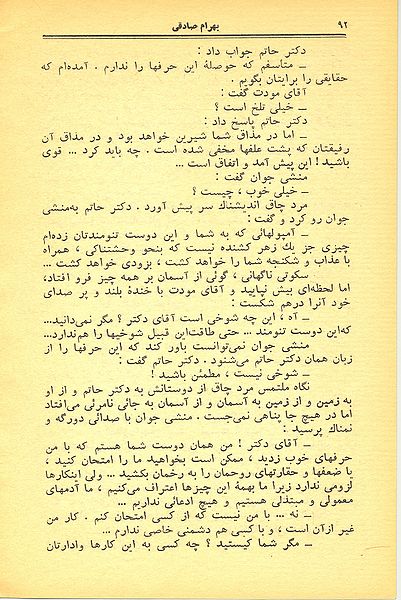 ۹۲
بهرام صادقی
دکتر حاتم جواب داد :
ــ متاسفم که حوصلهٔ این حرفها را ندارم . آمده‌ام که
حقایقی را برایتان بگویم .
آقای مودت گفت :
ــ خیلی تلخ است ؟
دکتر حاتم پاسخ داد :
ــ اما در مذاق شما شیرین خواهد بود و در مذاق آن
رفیقتان که پشت علفها مخفی شده است . چه باید کرد ... قوی
باشید ! این پیش آمد و اتفاق است ...
منشی جوان گفت :
ــ خیلی خوب ، چیست ؟
مرد چاق اندیشناك سر پیش آورد . دکتر حاتم به‌منشی
جوان رو کرد و گفت :
ــ آمپولهائی که به شما و این دوست تنومندتان زده‌ام
چیزی جز یك زهر کشنده نیست که بنحو وحشتناکی ، همراه
با عذاب و شکنجه شما را خواهد کشت ، بزودی خواهد کشت ...
سکوتی ناگهانی ، گوئی از آسمان بر همه چیز فرو افتاد،
اما لحظه‌ای بیش نپایید و آقای مودت با خندهٔ بلند و پر صدای
خود آنرا درهم شکست :
ــ آه ، این چه شوخی است آقای دکتر ؟ مگر نمی‌دانید...
که‌این دوست تنومند ... حتی طاقت‌این قبیل شوخیها را هم‌ندارد...
منشی جوان نمی‌توانست باور کند که این حرفها را از
زبان همان دکتر حاتم می‌شنود . دکتر حاتم گفت :
ــ شوخی نیست ، مطمئن باشید !
نگاه ملتمس مرد چاق از دوستانش به دکتر حاتم و از او
به زمین و از زمین به آسمان و از آسمان به جائی نامرئی می‌افتاد
اما در هیچ جا پناهی نمی‌جست . منشی جوان با صدائی دورگه و
نمناك پرسید :
ــ آقای دکتر ! من همان دوست شما هستم که با من
حرفهای خوب زدید ، ممکن است بخواهید ما را امتحان کنید ،
یا ضعفها و حقارتهای روحمان را به رخمان بکشید ... ولی اینکارها
لزومی ندارد زیرا ما بهمهٔ این چیزها اعتراف می‌کنیم ، ما آدمهای
معمولی و مبتذلی هستیم و هیچ ادعائی نداریم ...
ــ نه ... با من نیست که از کسی امتحان کنم . کار من
غیر ازآن است ، و با کسی هم دشمنی خاصی ندارم ...
ــ مگر شما کیستید ؟ چه کسی به این کارها وادارتان